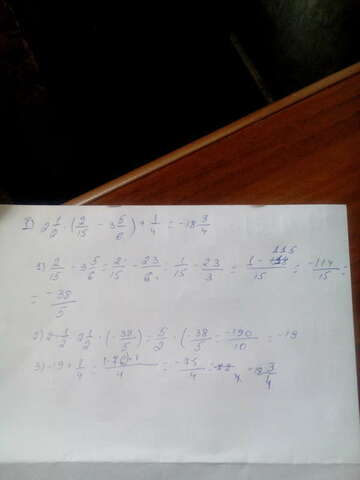 8) 2 1/2 · (2/15 - 3 5/6) + 1/4 = -18 3/4
1) 2/15 - 3 5/6 = 2/15 - 23/6 = 1/15 - 23/3 = (1 - 115)/15 = -114/15 =
= -38/5
2) 2 1/2 · (-38/5) = 5/2 · (-38/5 = -190/10 = -19
3) -19 + 1/4 = (-76+1)/4 = -75/4 = -18 3/4